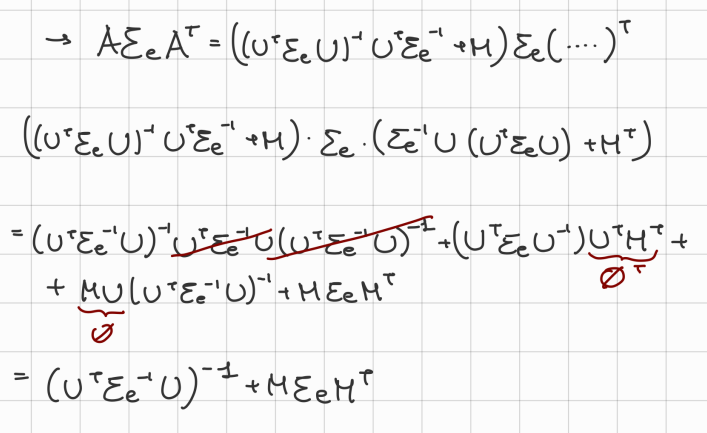 → AΣₑAᵀ = ((UᵀΣₑU)⁻¹UᵀΣₑ⁻¹ + M)Σₑ(····)ᵀ
((UᵀΣₑU)⁻¹UᵀΣₑ⁻¹ + M)·Σₑ·(Σₑ⁻¹U(UᵀΣₑU) + Mᵀ)
= (UᵀΣₑ⁻¹U)⁻¹UᵀΣₑ⁻¹U(UᵀΣₑ⁻¹U)⁻¹ + (UᵀΣₑU⁻¹)UᵀMᵀ +
∅ᵀ
+ MU(UᵀΣₑ⁻¹U)⁻¹ + MΣₑMᵀ
∅
= (UᵀΣₑ⁻¹U)⁻¹ + MΣₑMᵀ